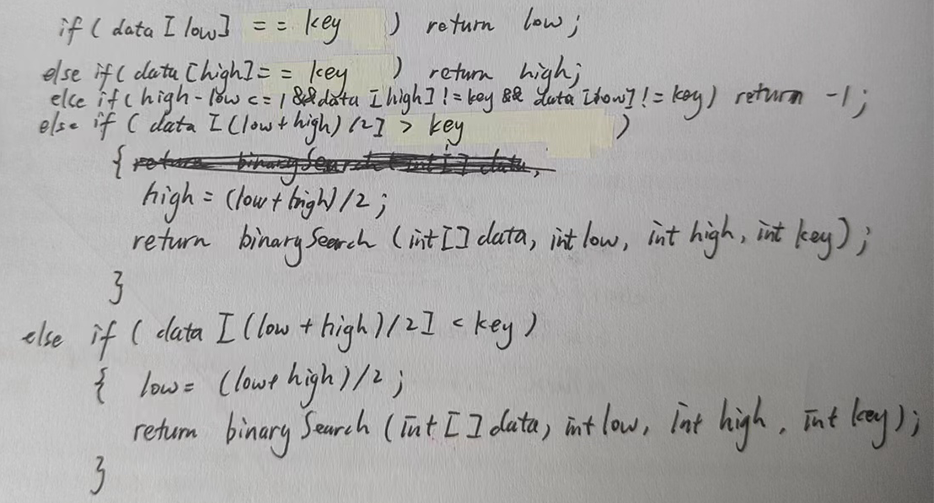 if ( data [ low] == key ) return low;
else if( data [high]== key ) return high;
else if( high-low <= 1 && data [high] != key && data [low] != key) return -1;
else if ( data [ (low+high) /2] > key )
{
high = (low+high)/2;
return binarySearch (int[] data, int low, int high, int key);
}
else if ( data [ (low + high)/2] < key )
{ low= (low+ high)/2;
return binarySearch (int[] data, int low, int high, int key);
}